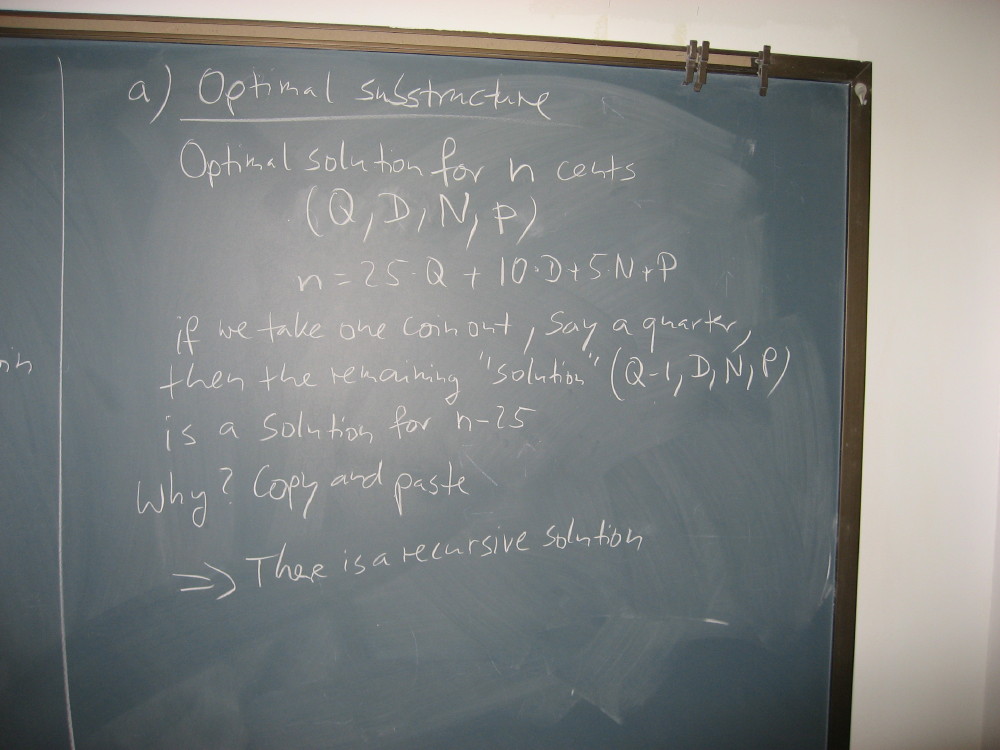 a) Optimal substructure
Optimal solution for n cents
(Q, D, N, P)
n = 25·Q + 10·D + 5·N + P
if we take one coin out, say a quarter,
then the remaining "solution" (Q-1, D, N, P)
is a solution for n-25
Why? Copy and paste
⇒ There is a recursive solution